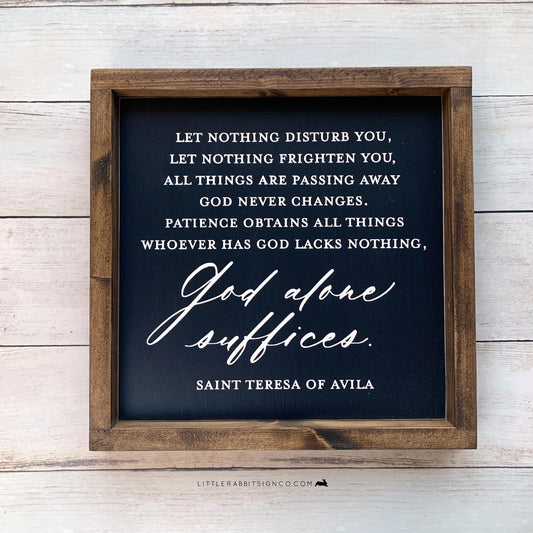 LET NOTHING DISTURB YOU,
LET NOTHING FRIGHTEN YOU,
ALL THINGS ARE PASSING AWAY
GOD NEVER CHANGES.
PATIENCE OBTAINS ALL THINGS
WHOEVER HAS GOD LACKS NOTHING,
God alone
suffices.
SAINT TERESA OF AVILA
LITTLERABBITSIGNCO.COM